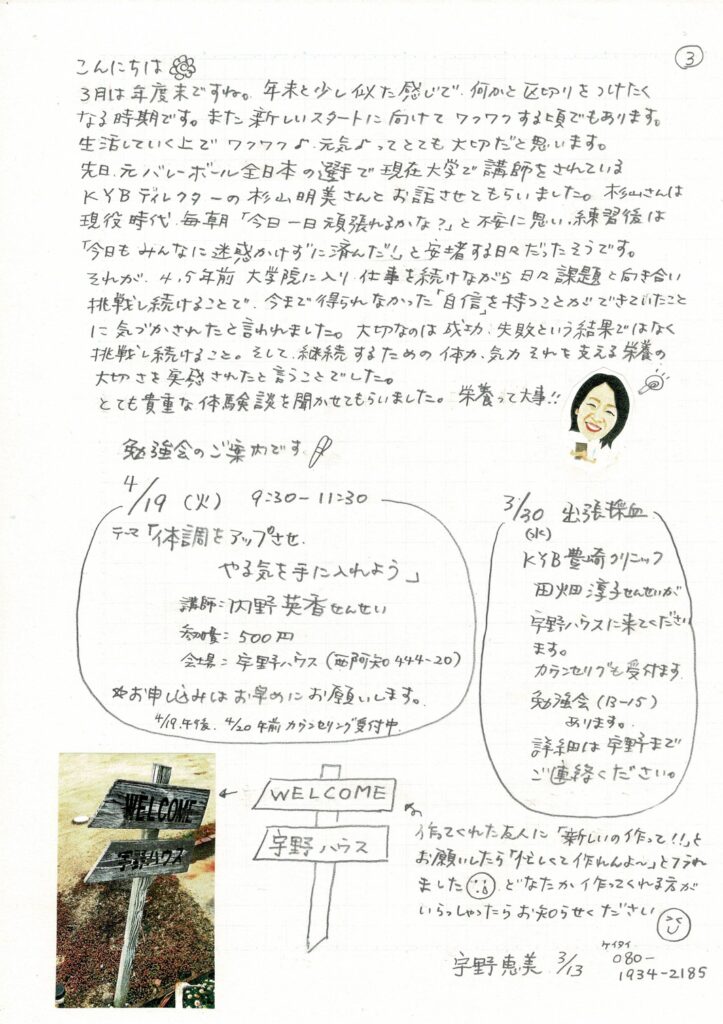 ③
こんにちは
3月は年度末ですね。年末と少し似た感じで、何かと区切りをつけたく
なる時期です。また新しいスタートに向けてワクワクする頃でもあります。
生活していく上でワクワク♪元気♪ってとても大切だと思います。
先日、元バレーボール全日本の選手で現在大学で講師をされている
KYBディレクターの杉山明美さんとお話させてもらいました。杉山さんは
現役時代、毎朝「今日一日頑張れるかな?」と不安に思い、練習後は
「今日もみんなに迷惑かけずに済んだ!」と安堵する日々だったそうです。
それが、4,5年前大学院に入り、仕事を続けながら日々課題と向き合い
挑戦し続けることで、今まで得られなかった「自信」を持つことができていたこと
に気づかされたと言われました。大切なのは成功、失敗という結果ではなく
挑戦し続けること。そして、継続するための体力、気力それを支える栄養の
大切さを実感されたと言うことでした。
とても貴重な体験談を聞かせてもらいました。栄養って大事!!
勉強会のご案内です
4/19(火) 9:30-11:30
テーマ「体調をアップさせ、
やる気を手に入れよう」
講師:内野英香せんせい
参加費:500円
会場:宇野ハウス(西阿知444-20)
☆お申し込みはお早めにお願いします。
4/19午後、4/20午前カウンセリング受付中
3/30 出張採血
(水)
KYB豊崎クリニック
田畑淳子せんせいが
宇野ハウスに来てください
ます。
カウンセリングも受付ます
勉強会(13-15)
あります。
詳細は宇野まで
ご連絡ください。
WELCOME
宇野ハウス
WELCOME
宇野ハウス
作ってくれた友人に「新しいの作って!!」と
お願いしたら「忙しくて作れんよ~」とフラれ
ました どなたか作ってくれる方が
いらっしゃったらお知らせください
宇野恵美 3/13
ケイタイ
080-
1934-2185